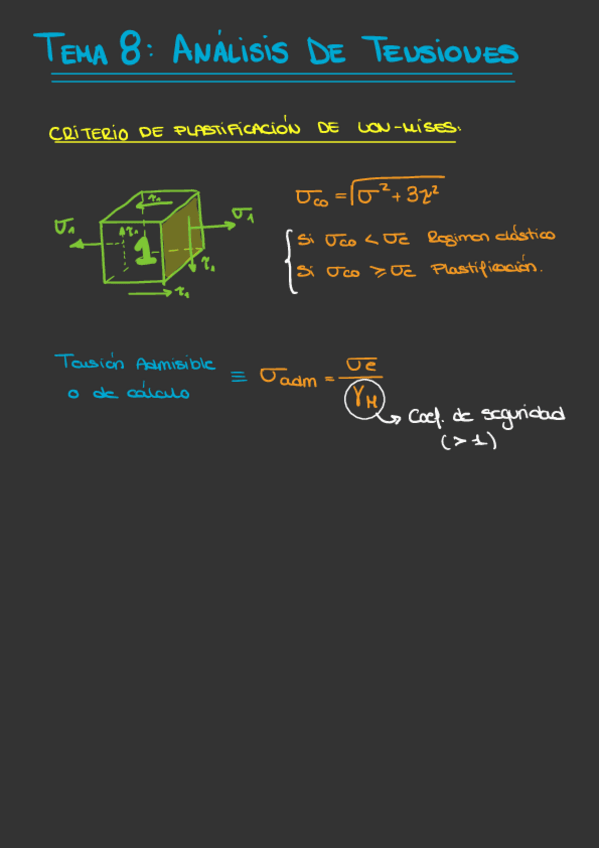 TEMA 8: ANÁLISIS DE TENSIONES
CRITERIO DE PLASTIFICACIÓN DE VON-MISES:
σco = √σ² + 3τ²
σ1 τ1 τ1 1 τ1 σ1
Si σco < σe Regimen elástico
Si σco ≥ σe Plastificación.
τ1
Tensión Admisible
o de cálculo ≡ σadm = σe / γM
Coef. de seguridad
(> 1)